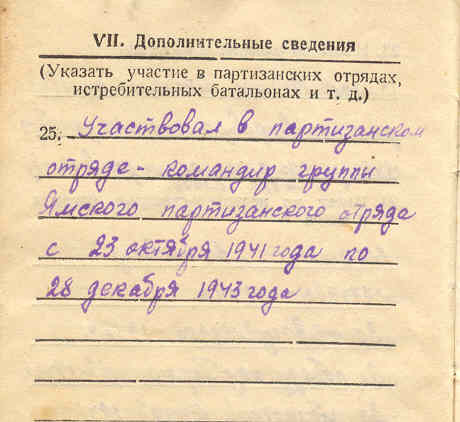 VII. Дополнительные сведения
(Указать участие в партизанских отрядах,
истребительных батальонах и т. д.)
25. Участвовал в партизанском
отряде - командир группы
Ямского партизанского отряда
с 23 октября 1941 года по
28 декабря 1943 года